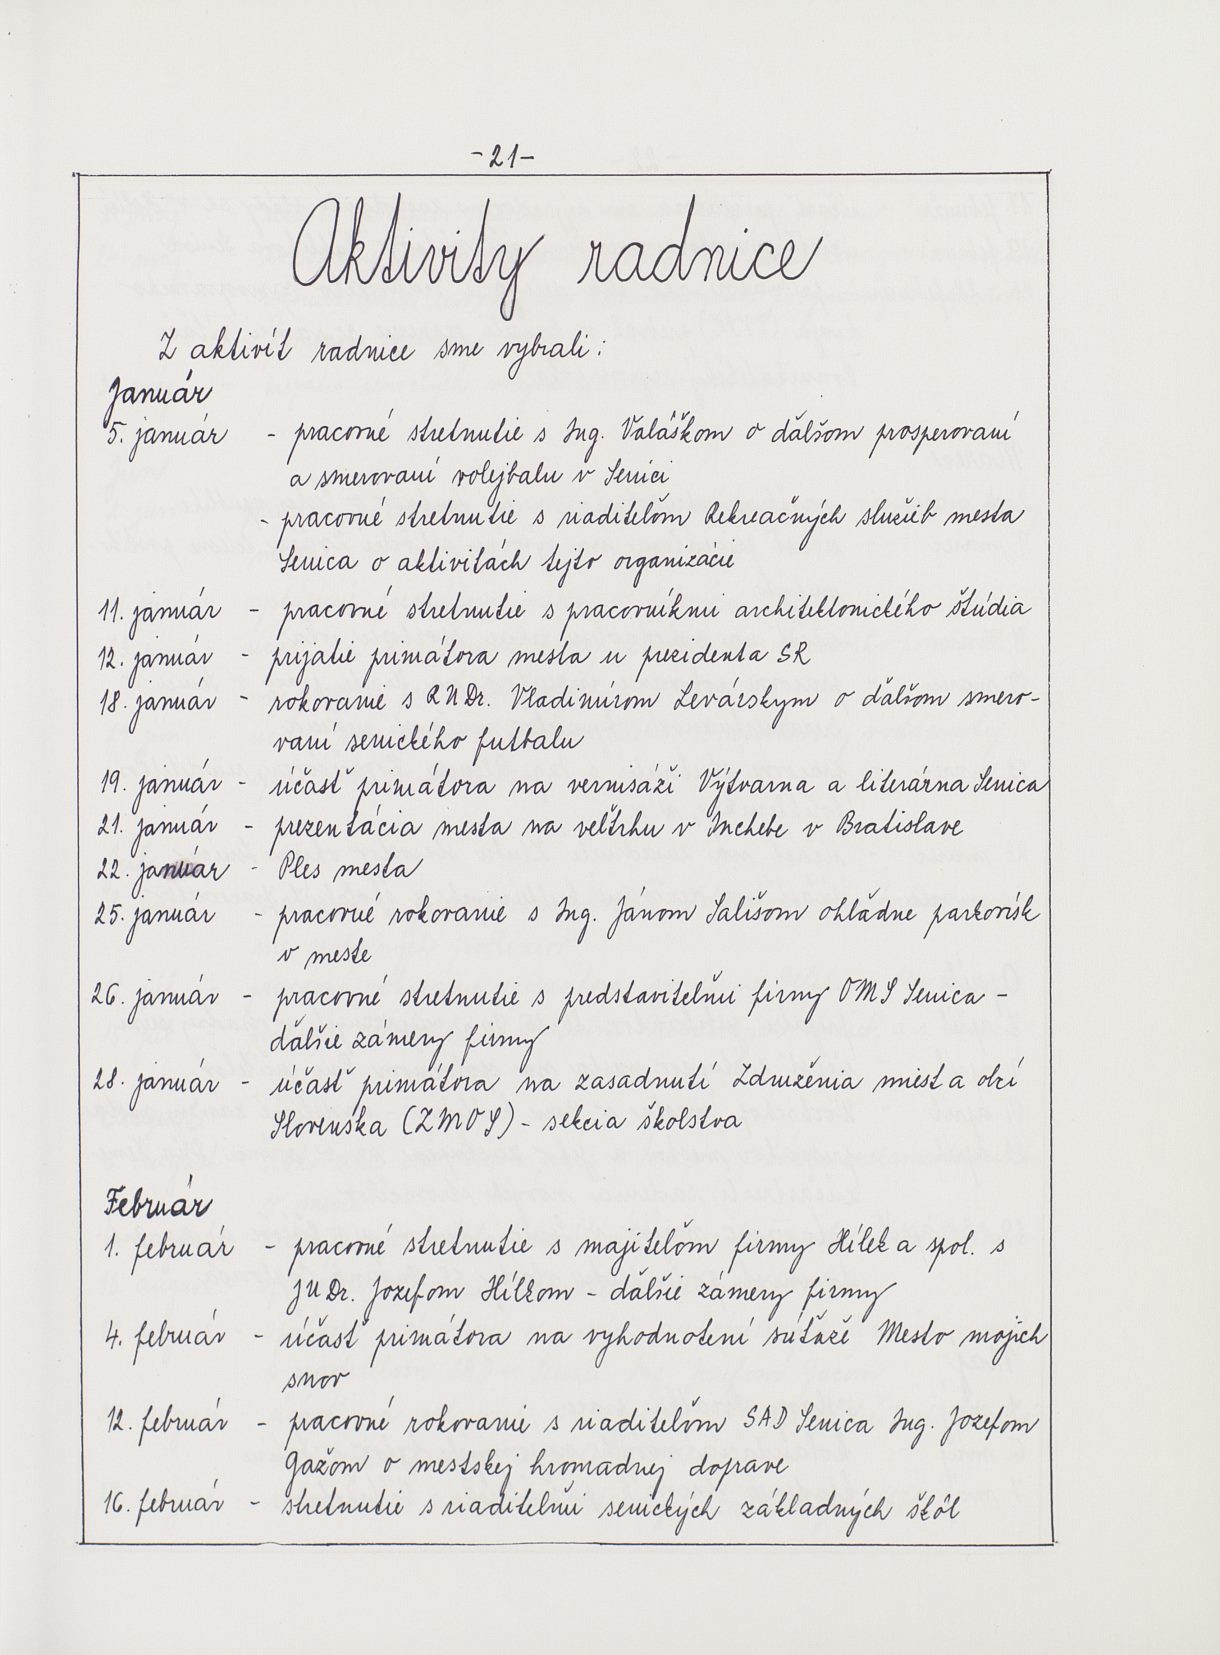 -21-
Aktivity radnice
Z aktivít radnice sme vybrali:
Január
5. január - pracovné stretnutie s Ing. Valáškom o ďalšom prosperovaní
a smerovaní volejbalu v Senici
- pracovné stretnutie s riaditeľom Rekreačných služieb mesta
Senica o aktivitách tejto organizácie
11. január - pracovné stretnutie s pracovníkmi architektonického štúdia
12. január - prijatie primátora mesta u prezidenta SR
18. január - rokovanie s RNDr. Vladimírom Levárskym o ďalšom smero-
vaní senického futbalu
19. január - účasť primátora na vernisáži Výtvarna a literárna Senica
21. január - prezentácia mesta na veľtrhu v Inchebe v Bratislave
22. január - Ples mesta
25. január - pracovné rokovanie s Ing. Jánom Sališom ohľadne parkovísk
v meste
26. január - pracovné stretnutie s predstaviteľmi firmy OMS Senica -
ďalšie zámery firmy
28. január - účasť primátora na zasadnutí Združenia miest a obcí
Slovenska (ZMOS) - sekcia školstva
Február
1. február - pracovné stretnutie s majiteľom firmy Hílek a spol. s
JUDr. Jozefom Hílkom - ďalšie zámery firmy
4. február - účasť primátora na vyhodnotení súťaže Mesto mojich
snov
12. február - pracovné rokovanie s riaditeľom SAD Senica Ing. Jozefom
Gažom o mestskej hromadnej doprave
16. február - stretnutie s riaditeľmi senických základných škôl